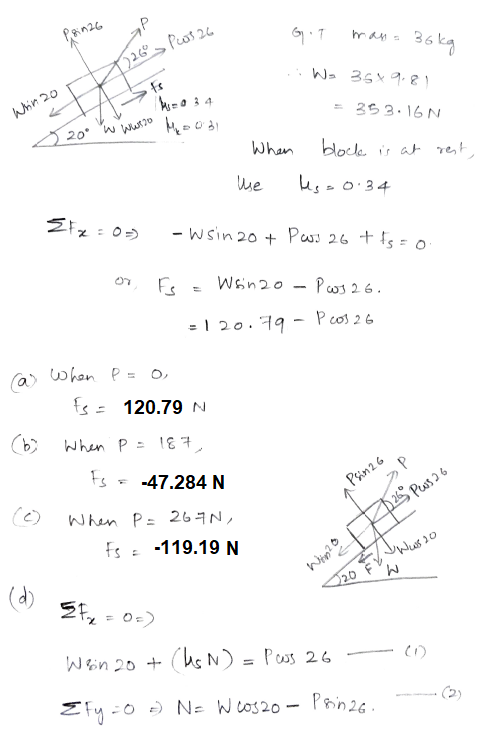 Psin26
P
26°
Pcos26
Wsin20
Fs
μs = 0.34
μk = 0.31
20°
W
Wcos20
G.T mass = 36kg
∴ W = 36 x 9.81
= 353.16N
When block is at rest,
Use μs = 0.34
ΣFx = 0 => - Wsin20 + Pcos 26 + fs = 0.
or, Fs = Wsin20 - Pcos26.
= 120.79 - Pcos26
(a) When P = 0,
Fs = 120.79 N
(b) When P = 187,
Fs = -47.284 N
(c) When P = 267N,
Fs = -119.19 N
Psin26
P
26°
Pcos26
Wsin20
Wcos20
20
F
W
(d) ΣFx = 0 =>
Wsin20 + (μsN) = Pcos 26 — (1)
ΣFy = 0 => N = Wcos20 - Psin26. — (2)